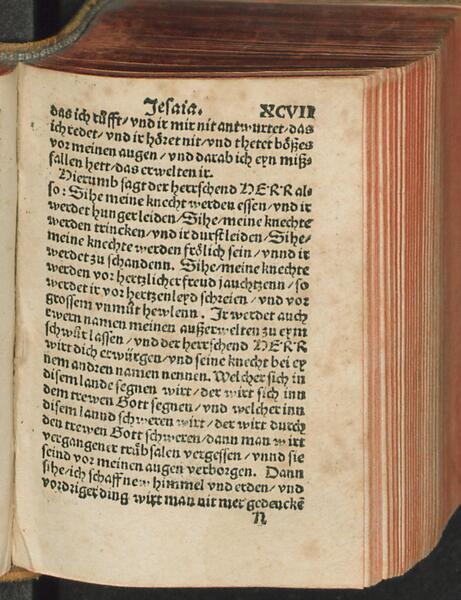 Jesaia. XCVII
das ich růfft/vnd ir mir nit antwurtet/das
ich redet/vnd ir hőret nit/vnd thetet bőßes
vor meinen augen/vnd darab ich eyn miß-
fallen hett/das erwelten ir.
Hierumb sagt der herrschend HERR al-
so: Sihe meine knecht werden essen/vnd ir
werdet hunger leiden/Sihe/meine knechte
werden trincken/vnd ir durst leiden/Sihe/
meine knechte werden frőlich sein/vnnd ir
werdet zu schandenn. Sihe/meine knechte
werden vor hertzlicher freud jauchtzenn/so
werdet ir vor hertzenleyd schreien/vnd vor
grossem vnmůt hewlenn. Ir werdet auch
ewern namen meinen außerwelten zu eym
schwůr lassen/vnd der herrschend HERR
wirt dich erwürgen/vnd seine knecht bei ey
nem andren namen nennen. Welcher sich in
disem lande segnen wirt/der wirt sich inn
dem trewen Gott segnen/vnd welcher inn
disem lannd schweren wirt/der wirt durch
den trewen Gott schweren/dann man wirt
vergangener trůbsalen vergessen/vnnd sie
seind vor meinen augen verborgen. Dann
sihe/ich schaff new himmel vnd erden/vnd
vordriger ding wirt man nit mer gedenckē
N